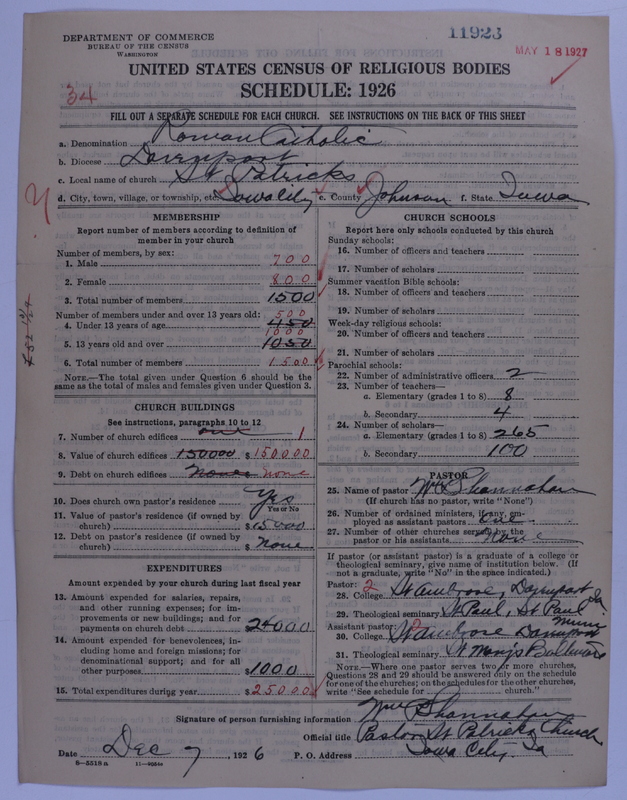 DEPARTMENT OF COMMERCE
BUREAU OF THE CENSUS
WASHINGTON
11923
MAY 18 1927
UNITED STATES CENSUS OF RELIGIOUS BODIES
SCHEDULE: 1926
34
FILL OUT A SEPARATE SCHEDULE FOR EACH CHURCH. SEE INSTRUCTIONS ON THE BACK OF THIS SHEET
a. Denomination Roman Catholic
b. Diocese Davenport
c. Local name of church St Patricks
d. City, town, village, or township, etc. Iowa City e. County Johnson f. State Iowa
MEMBERSHIP
Report number of members according to definition of
member in your church
Number of members, by sex:
1. Male 700
2. Female 800
3. Total number of members 1500
Number of members under and over 13 years old:
500
4. Under 13 years of age 450
1000
5. 13 years old and over 1050
6. Total number of members 1500
NOTE.—The total given under Question 6 should be the
same as the total of males and females given under Question 3.
CHURCH BUILDINGS
See instructions, paragraphs 10 to 12
7. Number of church edifices one 1
8. Value of church edifices 150000 $ 150000
9. Debt on church edifices none none
10. Does church own pastor's residence Yes
Yes or No
11. Value of pastor's residence (if owned by
church) $ 15000
12. Debt on pastor's residence (if owned by
church) $ None
EXPENDITURES
Amount expended by your church during last fiscal year
13. Amount expended for salaries, repairs,
and other running expenses; for im-
provements or new buildings; and for
payments on church debt 24000
14. Amount expended for benevolences, in-
cluding home and foreign missions; for
denominational support; and for all
other purposes $ 1000
15. Total expenditures during year $ 25000
CHURCH SCHOOLS
Report here only schools conducted by this church
Sunday schools:
16. Number of officers and teachers
17. Number of scholars
Summer vacation Bible schools:
18. Number of officers and teachers
19. Number of scholars
Week-day religious schools:
20. Number of officers and teachers
21. Number of scholars
Parochial schools:
22. Number of administrative officers 2
23. Number of teachers—
a. Elementary (grades 1 to 8) 8
b. Secondary 4
24. Number of scholars—
a. Elementary (grades 1 to 8) 265
b. Secondary 100
PASTOR
25. Name of pastor Wm P Shannahan
(If church has no pastor, write "None")
26. Number of ordained ministers, if any, em-
ployed as assistant pastors One
27. Number of other churches served by the
pastor or his assistants None
If pastor (or assistant pastor) is a graduate of a college or
theological seminary, give name of institution below. (If
not a graduate, write "No" in the space indicated.)
Pastor: 2
28. College St Ambrose, Davenport Ia
29. Theological seminary St Paul, St Paul Minn
Assistant pastor: 2
30. College St Ambrose Davenport
31. Theological seminary St Marys Baltimore
NOTE.—Where one pastor serves two or more churches,
Questions 28 and 29 should be answered only on the schedule
for one of the churches; on the schedules for the other churches,
write "See schedule for church."
Signature of person furnishing information Wm P Shannahan
Official title Pastor St Patricks Church
Date Dec 7, 1926 P. O. Address Iowa City, Ia
6—5518a